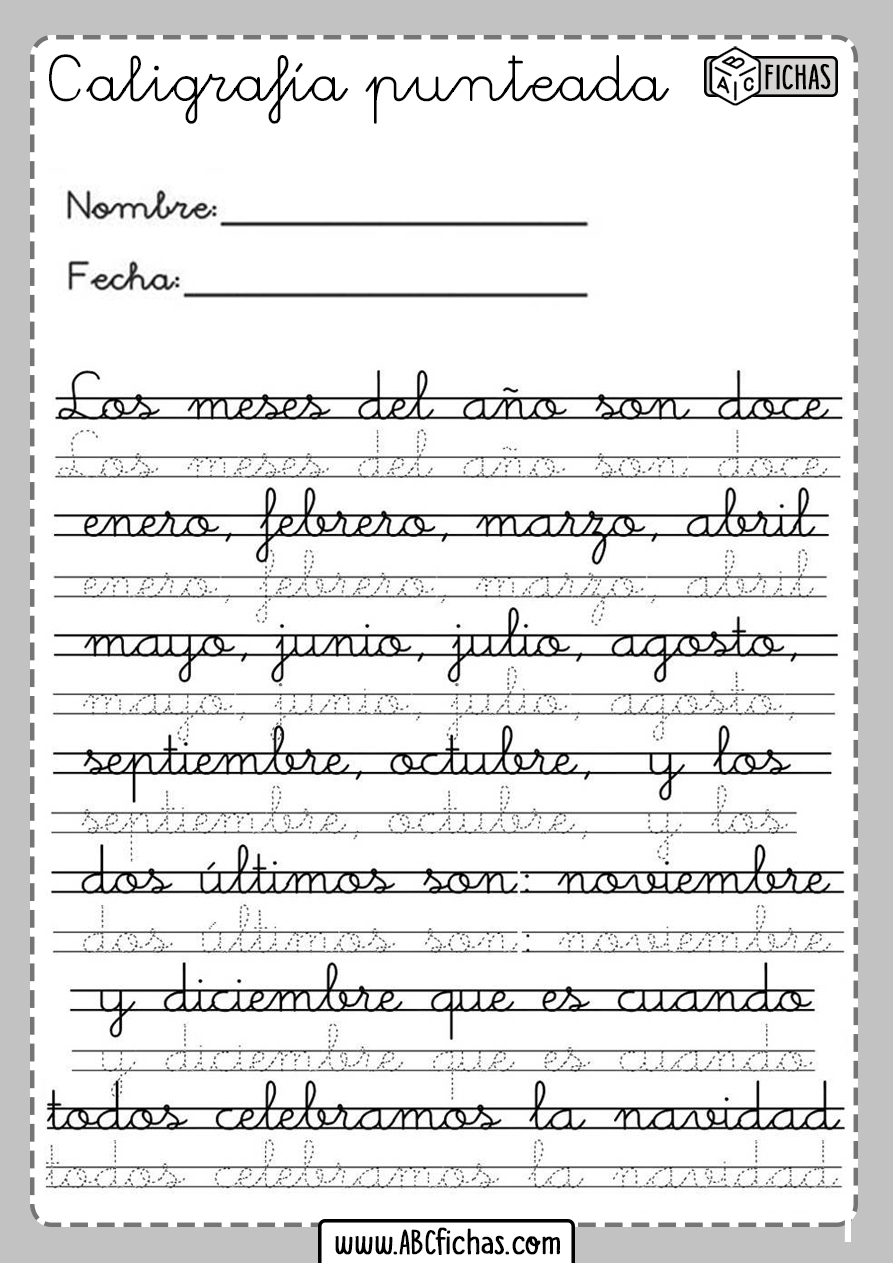 Caligrafía punteada
ABC FICHAS
Nombre:
Fecha:
Los meses del año son doce
Los meses del año son doce
enero, febrero, marzo, abril
enero, febrero, marzo, abril
mayo, junio, julio, agosto,
mayo, junio, julio, agosto,
septiembre, octubre, y los
septiembre, octubre, y los
dos últimos son: noviembre
dos últimos son: noviembre
y diciembre que es cuando
y diciembre que es cuando
todos celebramos la navidad
todos celebramos la navidad
www.ABCfichas.com